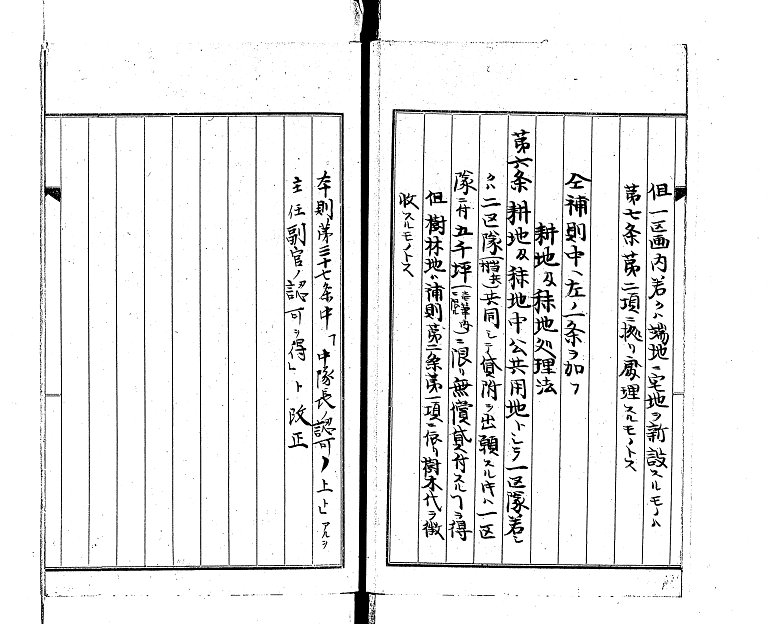 但一区画内若クハ端地ニ宅地ヲ新設スルモノハ
第七条第二項ニ拠リ処理スルモノトス
仝補則中ヘ左ノ一条ヲ加フ
耕地及秣地処理法
第六条 耕地及秣地中公共用地トシテ一区隊若シ
クハ二区隊共同シテ貸附ヲ出願スル片ハ一区
隊ニ付五千坪ニ限リ無償貸付スルヿヲ得
但樹林地ハ補則第二条第一項ニ依リ樹木代ヲ徴
収スルモノトス
本則第三十七条中「中隊長ノ認可」上トアルヲ
主任副官ノ認可ヲ得」ト改正